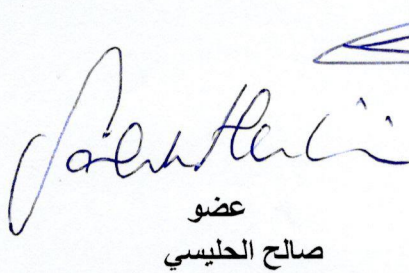 عضو
صالح الحليسي